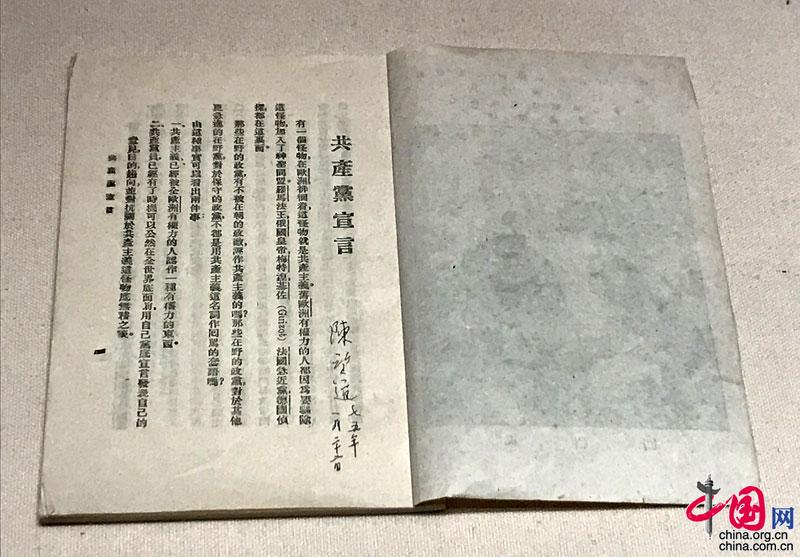 共產黨宣言
有一個怪物，在歐洲徘徊着，這怪物就是共產主義。舊歐洲有權力的人都因爲要驅除
這怪物，加入了神聖同盟。羅馬法王，俄國皇帝，梅特涅，基佐（Guizot），法國急近黨，德國偵
探，都在這裏面。
那些在野的政黨，有不被在朝的政敵，誣作共產主義的嗎？那些在野的政黨，對於其他
更急進的在野黨，對於保守的政黨，不都是用共產主義這名詞作回罵的套語嗎？
由這種事實可以看出兩件事：
一、共產主義，已經被全歐洲有權力的人認作一種有權力的東西。
二、共產黨員，已經有了時機可以公然在全世界底面前，用自己黨底宣言發表自己的
意見，目的，趨向，並對抗關於共產主義這怪物底無稽之談。
共產黨宣言
陳望道
七五年
一月
中国网
china.org.cn
china.com.cn